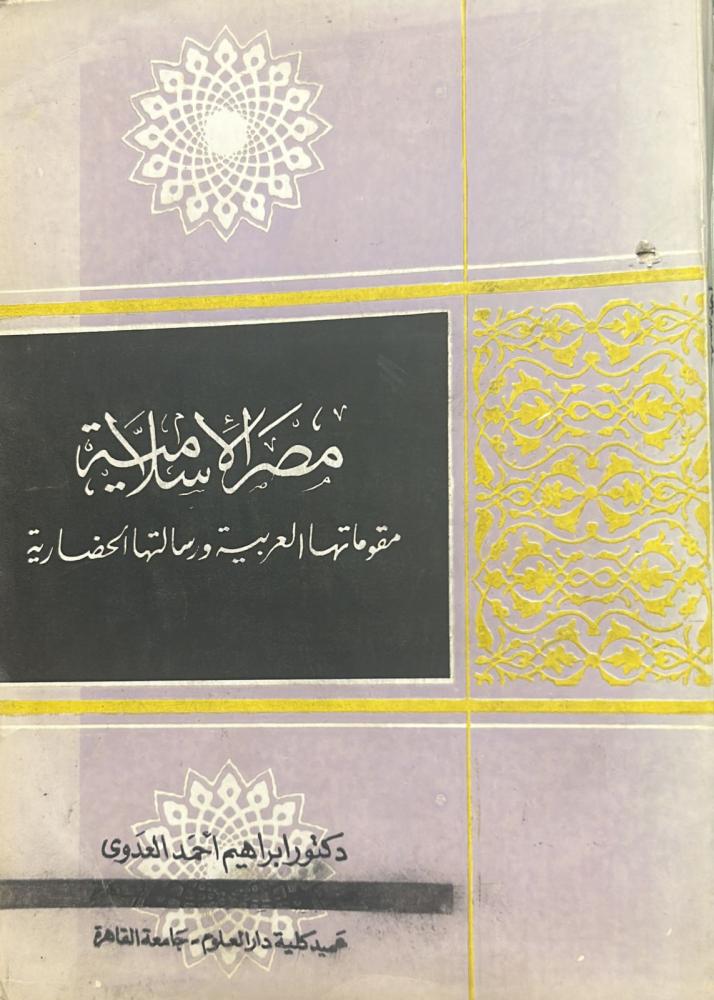 مصر الإسلامية
مقوماتها العربية ورسالتها الحضارية
دكتور ابراهيم أحمد العدوى
عميد كلية دار العلوم - جامعة القاهرة